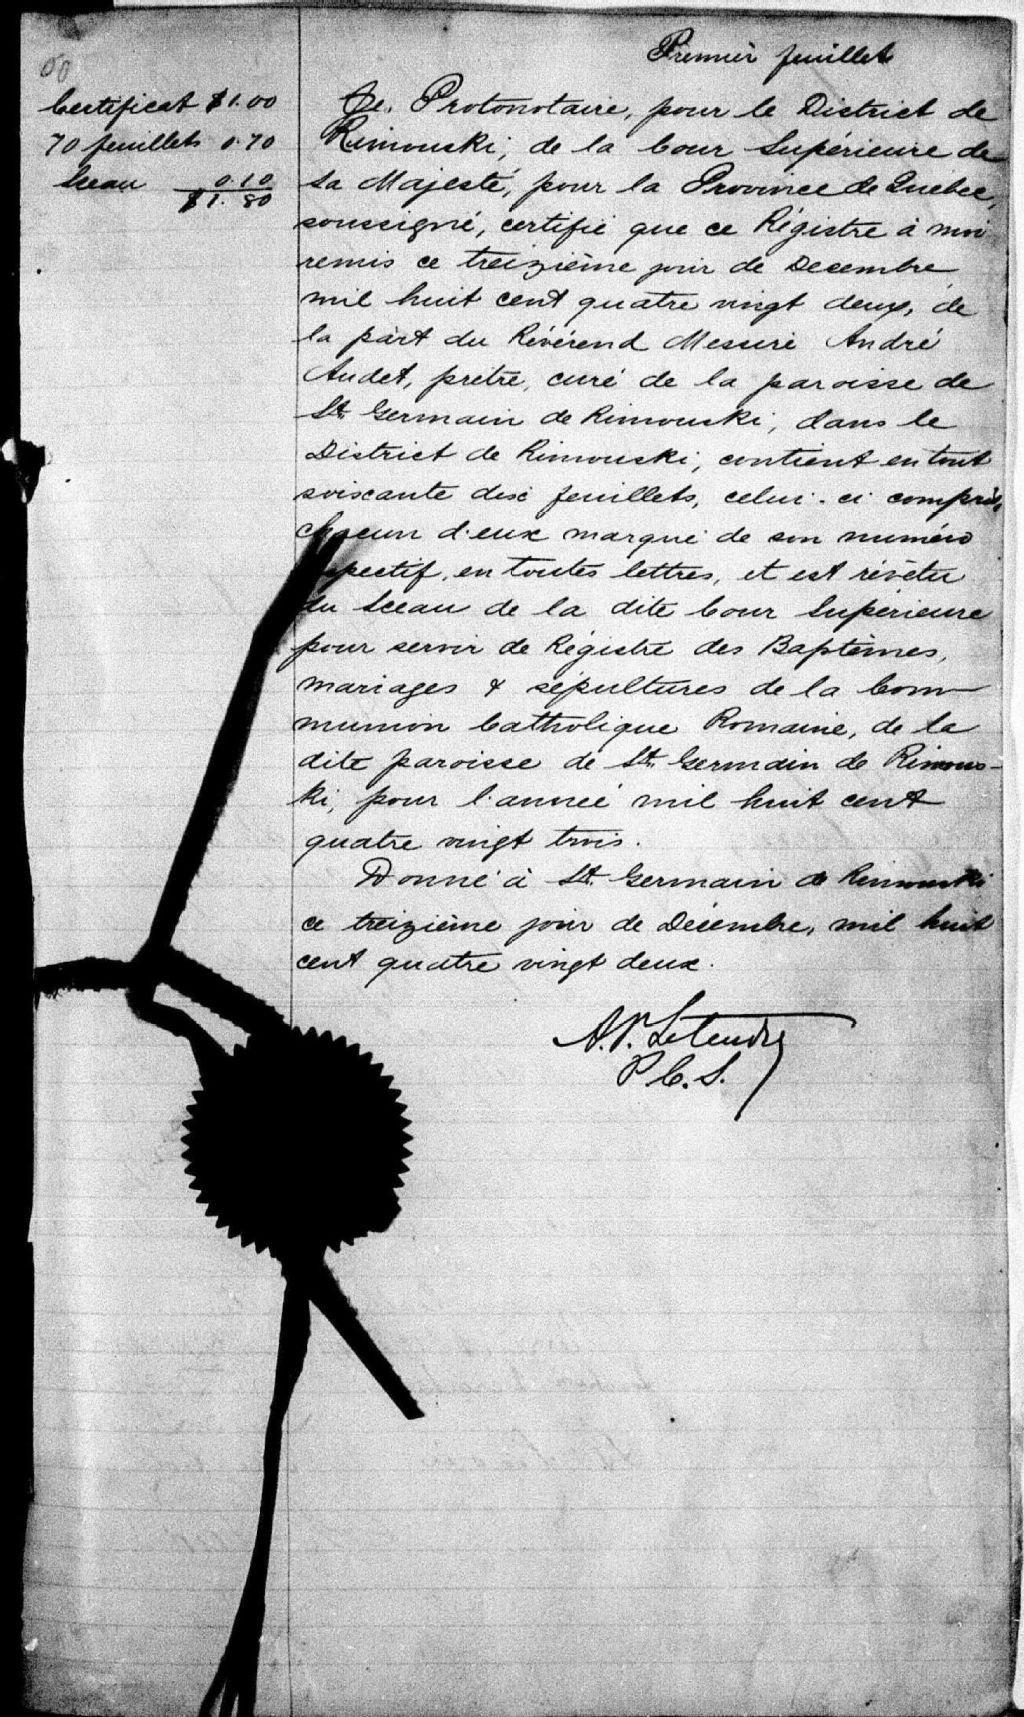 Premier feuillet
Certificat $1.00
70 feuillets 0.70
Sceau 0.10
$1.80
Le Protonotaire, pour le District de
Rimouski, de la Cour Supérieure de
Sa Majesté, pour la Province de Quebec,
soussigné, certifie que ce Régistre à moi
remis ce treizième jour de Decembre
mil huit cent quatre vingt deux, de
la part du Révérend Messire André
Audet, prêtre, curé de la paroisse de
St. Germain de Rimouski, dans le
District de Rimouski, contient en tout
soixante dix feuillets, celui-ci compris,
chacun d'eux marqué de son numéro
respectif, en toutes lettres, et est révêtu
du Sceau de la dite Cour Supérieure
pour servir de Régistre des Baptêmes,
mariages & sépultures de la Com-
munion Catholique Romaine, de la
dite paroisse de St. Germain de Rimous-
ki, pour l'année mil huit cent
quatre vingt trois.
Donné à St. Germain de Rimouski
ce treizième jour de Décembre, mil huit
cent quatre vingt deux.
A.P. Letendre
P.C.S.